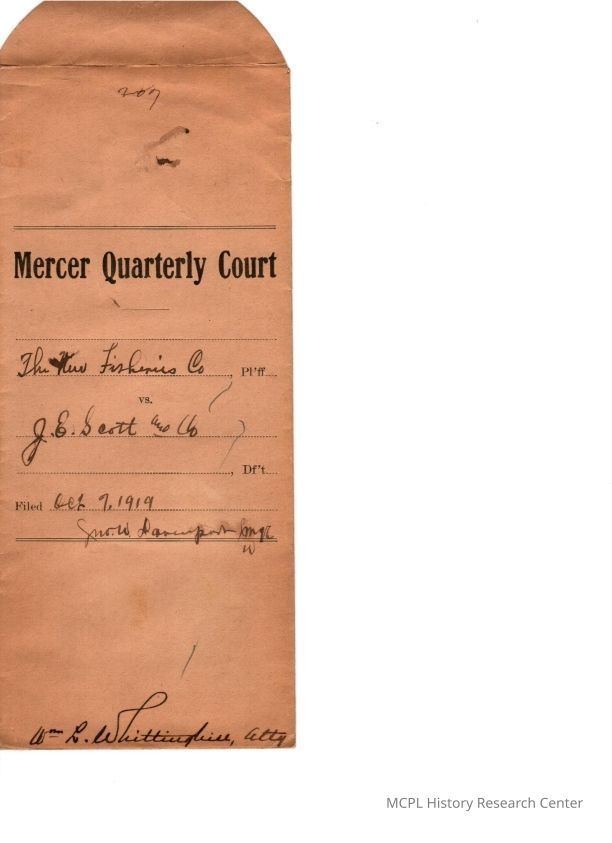 209
Mercer Quarterly Court
The New Fisheries Co , Pl'ff
vs.
J. E. Scott and Co
, Df't
Filed Oct 7, 1919
Jno. W. Davenport
Wm L. Whittinghill, Atty
MCPL History Research Center